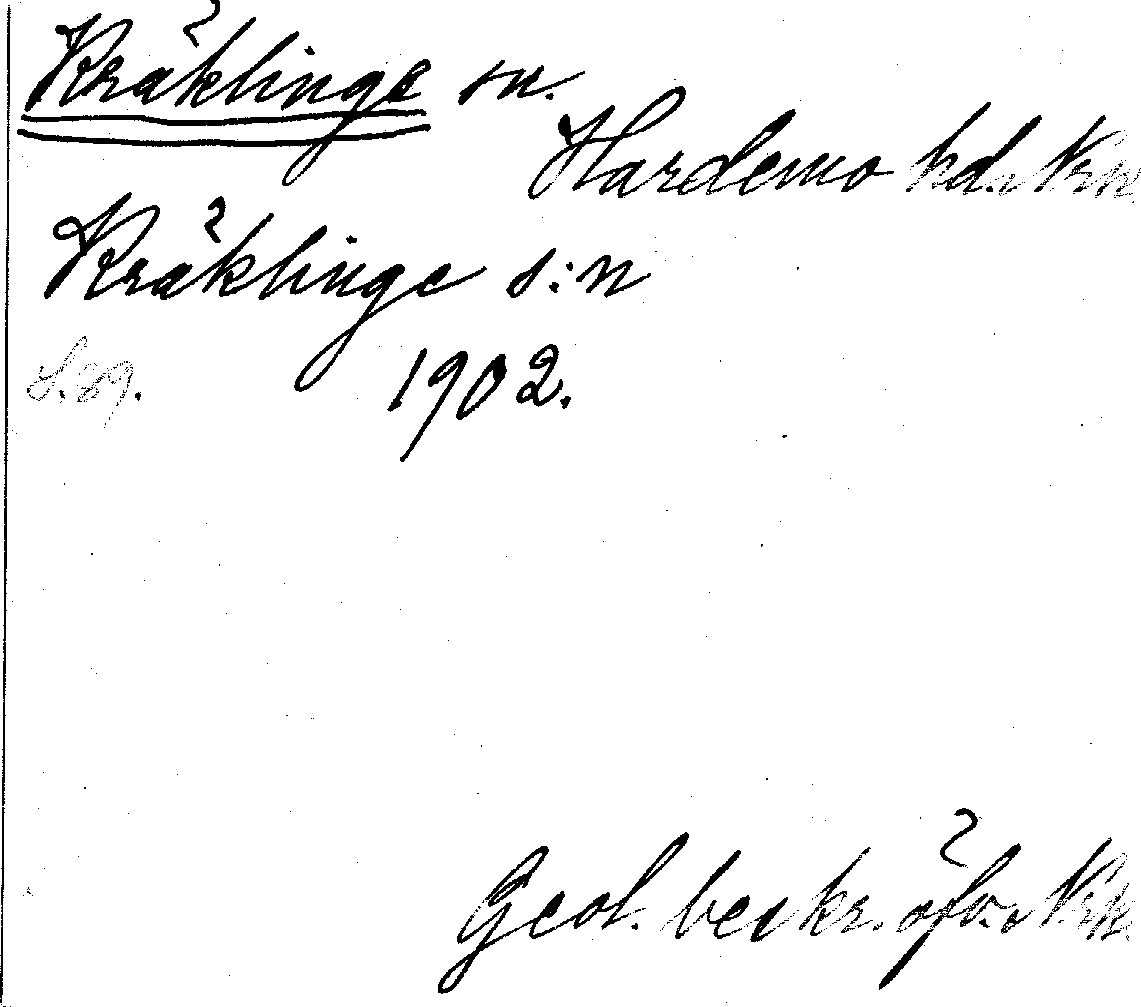 Kräklinge sn.
Hardemo hd. Nrk.
Kräklinge s:n
S. 39. 1902.
Geol. beskr. öfv. Nrk.